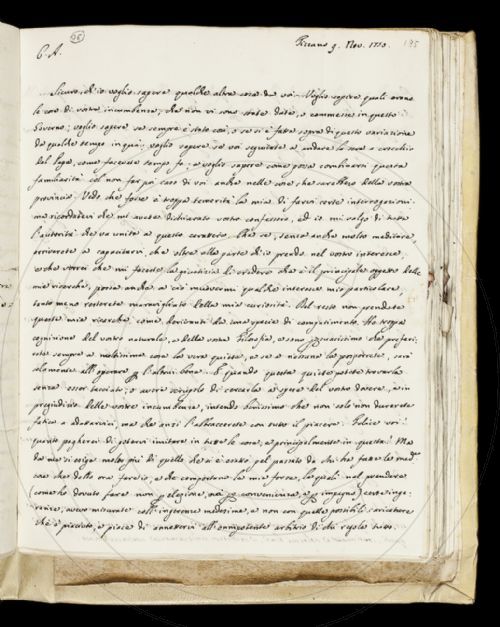 C. A.
26
Fizzano 9. Nov. 1770.
195
Sicuro, ch'io voglio sapere qualche altra cosa da voi. Voglio sapere quali erano
le cose di vostra incumbenza, che non vi sono state date, o commesse in questo
Governo; voglio sapere se sempre è stato così, o se si è fatta sopra di questo variazione
da qualche tempo in qua; voglio sapere se voi seguitate a andare la sera a crocchio
del Papa, come facevate tempo fa: e voglio sapere come possa combinarsi questa
familiarità col non far più caso di voi anche nelle cose, che sarebbero della vostra
provincia. Vedo che forse è troppa temerità la mia di farvi certe interrogazioni:
ma ricordatevi che mi avete dichiarato vostro confessore, ed io mi valgo di tutta
l'autorità che va unita a questo carattere. Che se, senza anche molto meditare,
arriverete a capacitarvi, che oltre alla parte ch'io prendo nel vostro interesse,
e che vorrei che mi faceste la giustizia di credere che è il principale oggetto delle
mie ricerche, possa anche a ciò muovermi qualche interesse mio particolare,
tanto meno resterete maravigliato della mia curiosità. Del resto non prendete
queste mie ricerche, come derivanti da una specie di compatimento. Ho troppa
cognizione del vostro naturale, e della vostra Filosofia, e sono persuasissimo che preferi-
rete sempre a moltissime cose la vera quiete, e se a nessuna la posporrete, sarà
solamente all'operare per l'altrui bene. E quando questa quiete potete trovarla
senza esser tacciato, o avere scrupolo di cercarla a spese del vostro dovere, e in
pregiudizio delle vostre incumbenze, intendo benissimo che non solo non durerete
fatica a adattarvici, ma che anzi l'abbraccerete con tutto il piacere. Felice voi!
quanto pagherei di potervi imitare in tutte le cose, e principalmente in questa! Ma
da me si esige molto più di quello che si è esatto pel passato da chi ha fatte le med.me
cose che dello ora faccio, e che comportano le mie forze, le quali nel prendere
(come ho dovuto fare non per elezione, ma per convenienza, e per impegno) certe inge-
renze, avevo misurate coll'ingerenze medesime, e non con quelle possibili cavicchie
che è piaciuto, e piace di annettervi all'onnipotente arbitrio di chi regola tutto.